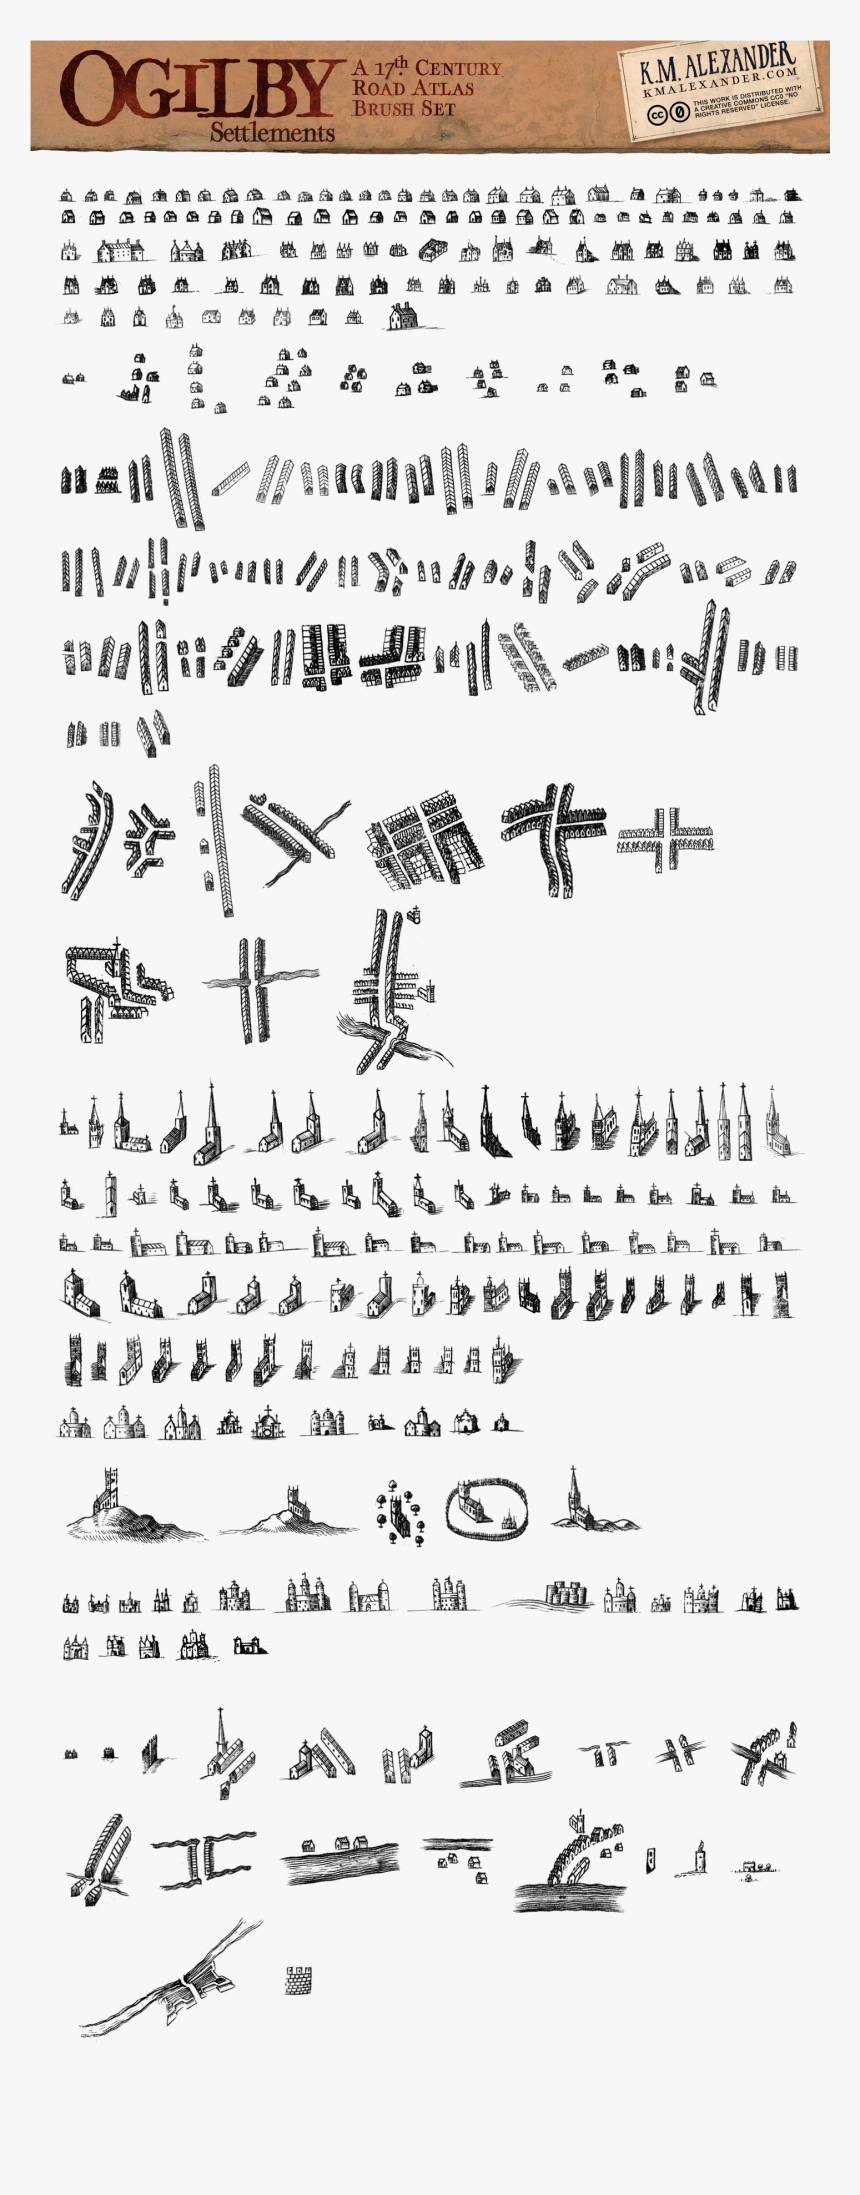 OGILBY
Settlements
A 17th Century
Road Atlas
Brush Set
K.M. ALEXANDER
KMALEXANDER.COM
cc 0
THIS WORK IS DISTRIBUTED WITH
A CREATIVE COMMONS CC0 "NO
RIGHTS RESERVED" LICENSE.